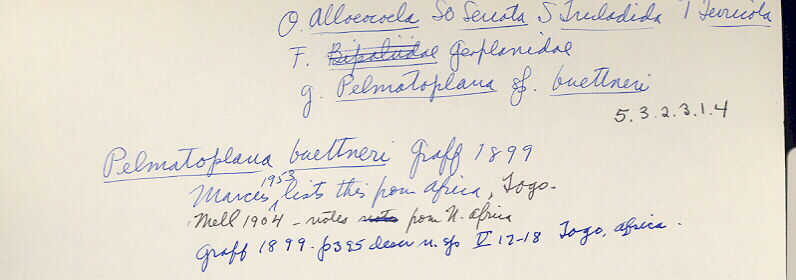 O. Alloeocoela So Seriata S Tricladida T Terricola
F. Bipaliidae Geoplanidae
g. Pelmatoplana sp. buettneri
5.3.2.3.1.4
Pelmatoplana buettneri Graff 1899
Marcus 1953 lists this from Africa, Togo.
Mell 1904 - notes from N. Africa
Graff 1899 - p395 descr n. sp V 12-18 Togo, Africa.